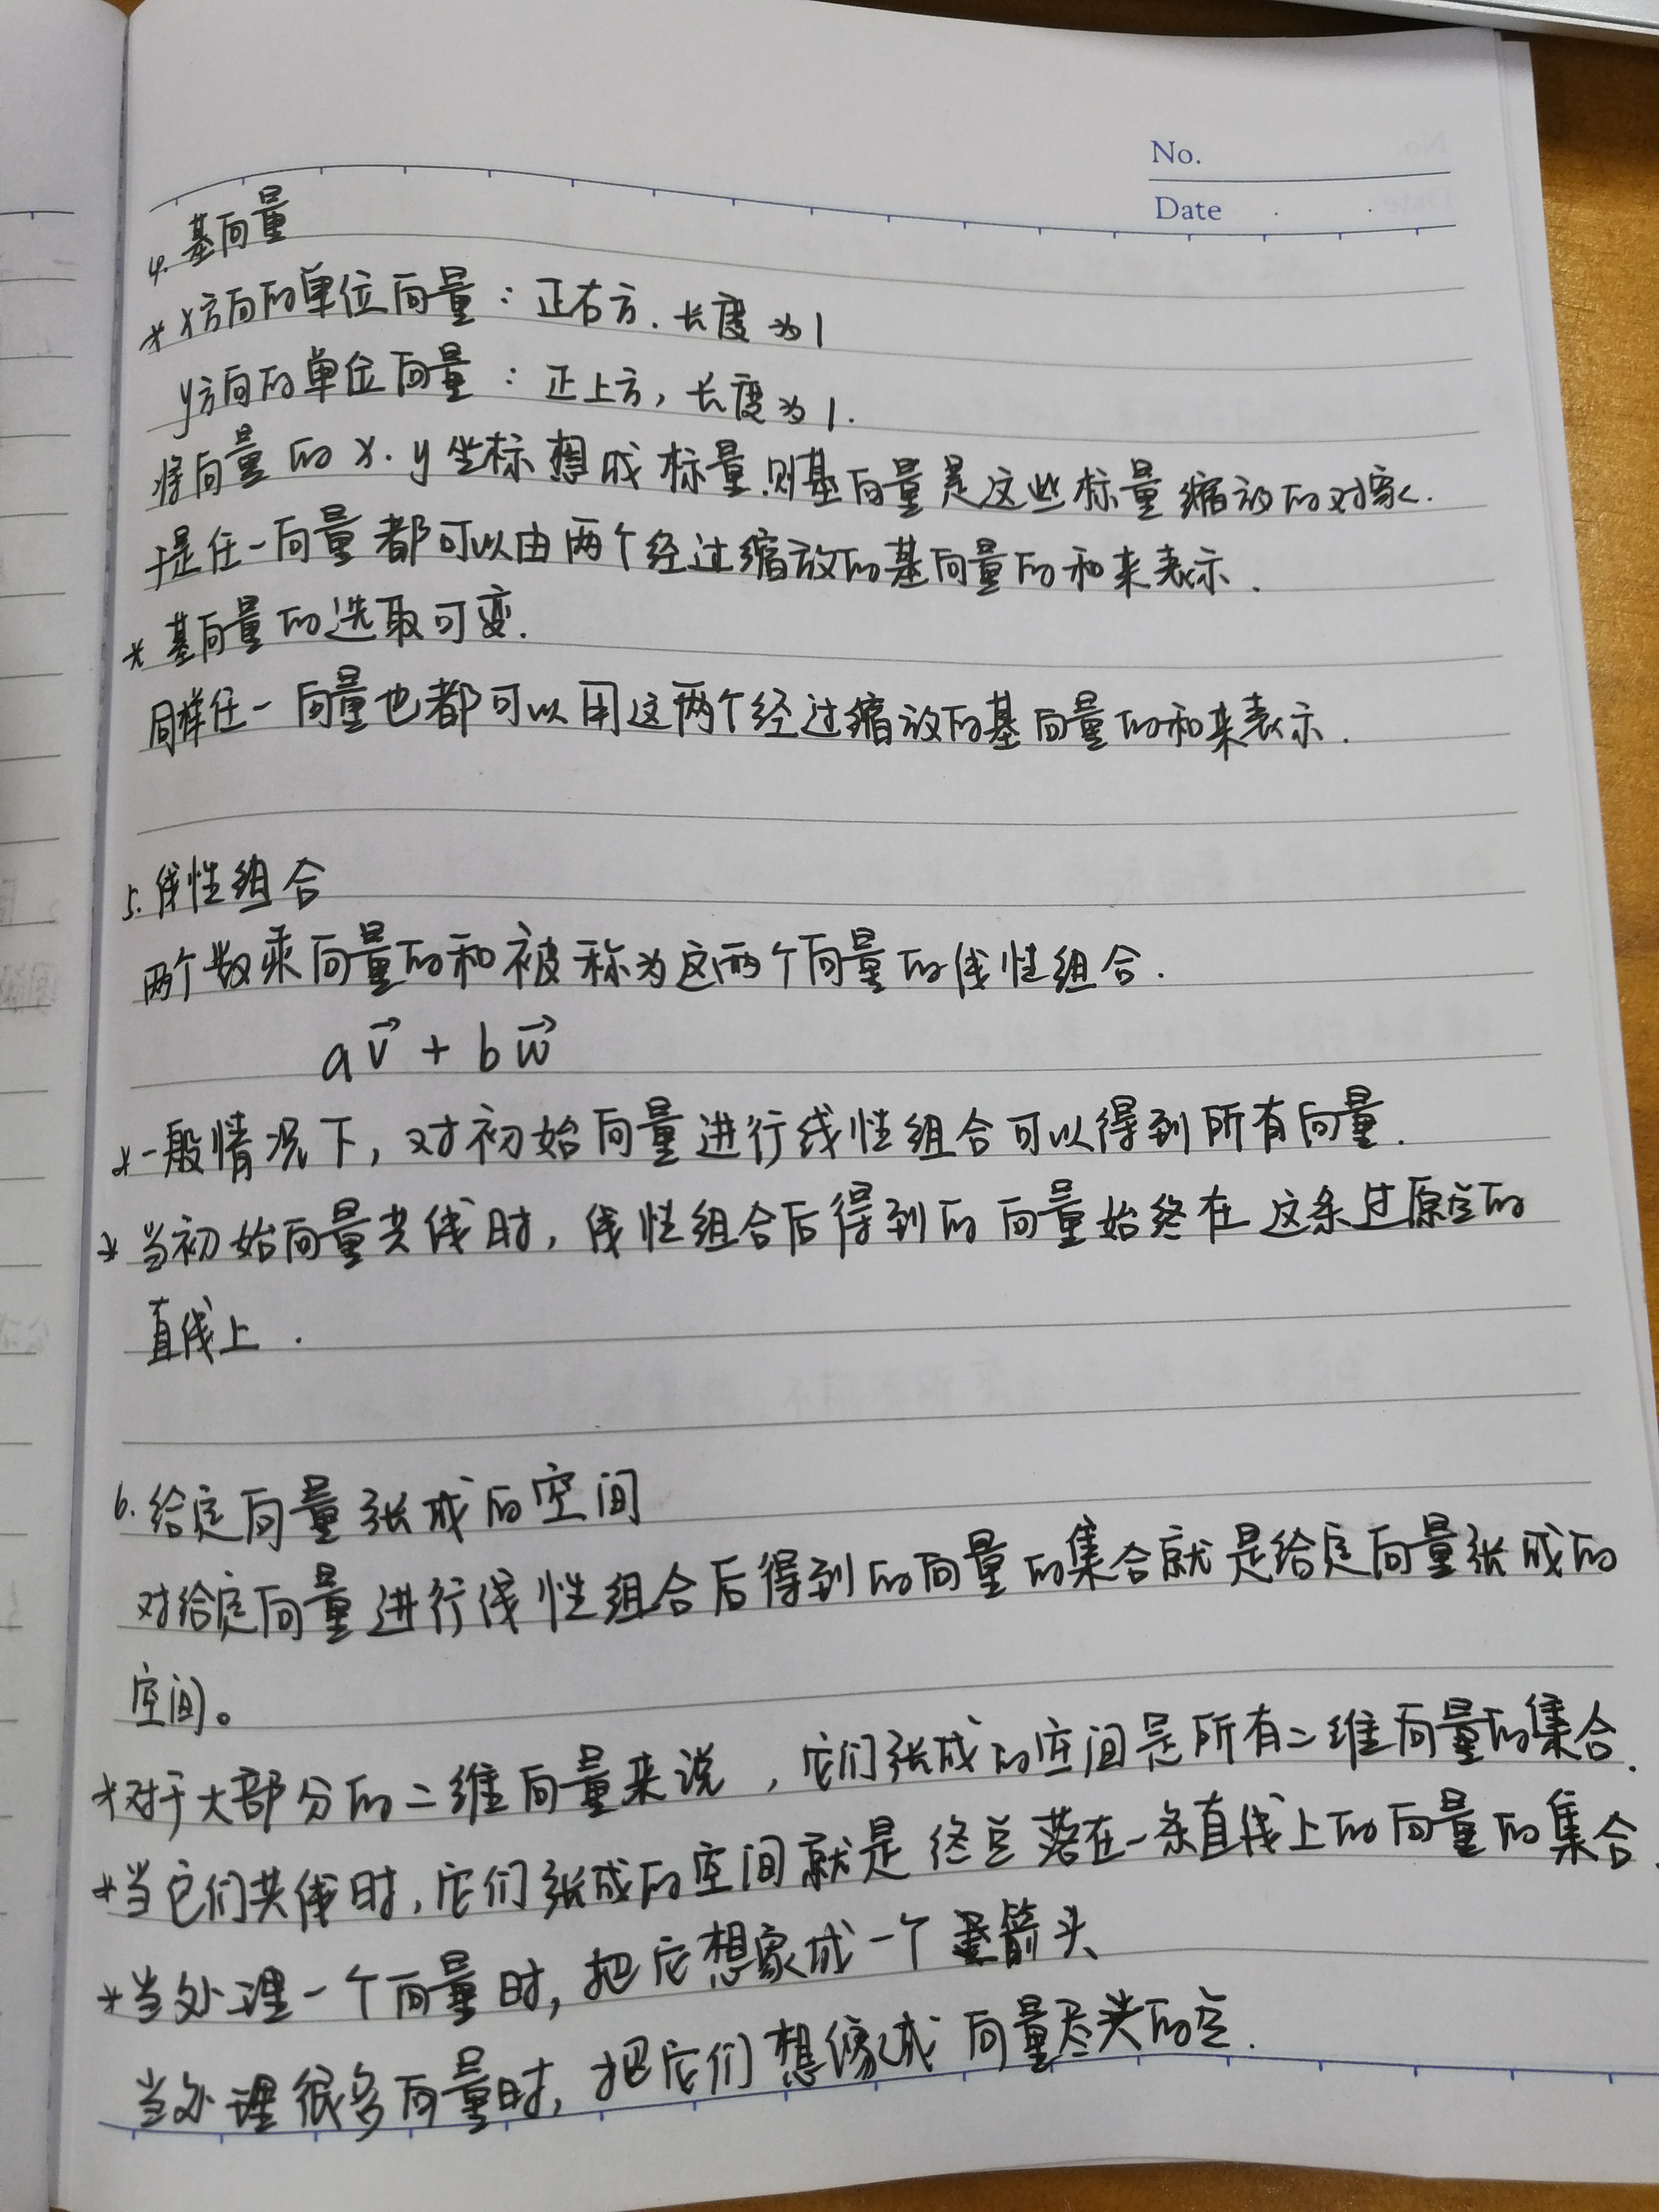 No.
Date
4. 基向量
* x方向的单位向量：正右方.长度为1
y方向的单位向量：正上方，长度为1.
将向量的x.y坐标想成标量.则基向量是这些标量缩放的对象.
于是任一向量都可以由两个经过缩放的基向量的和来表示.
* 基向量的选取可变.
同样任一向量也都可以用这两个经过缩放的基向量的和来表示.
5. 线性组合
两个数乘向量的和被称为这两个向量的线性组合.
a v⃗ + b w⃗
* 一般情况下，对初始向量进行线性组合可以得到所有向量.
* 当初始向量共线时，线性组合后得到的向量始终在这条过原点的
直线上.
6. 给定向量张成的空间
对给定向量进行线性组合后得到的向量的集合就是给定向量张成的
空间。
* 对于大部分的二维向量来说，它们张成的空间是所有二维向量的集合.
* 当它们共线时，它们张成的空间就是终点落在一条直线上的向量的集合.
* 当处理一个向量时，把它想象成一个箭头
当处理很多向量时，把它们想像成向量尽头的点.